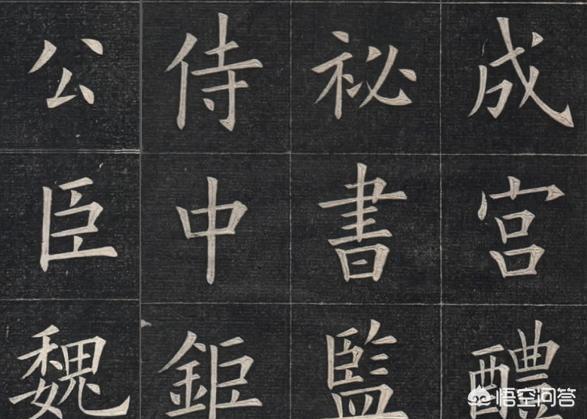 成宮醴
祕書監
侍中鉅
公臣魏
悟空问答